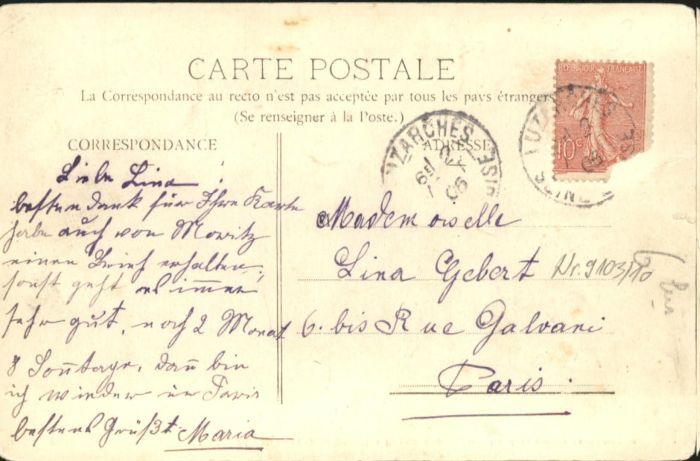 CARTE POSTALE
La Correspondance au recto n'est pas acceptée par tous les pays étrangers
(Se renseigner à la Poste.)
CORRESPONDANCE
ADRESSE
REPUBLIQUE FRANÇAISE
10c
LUZARCHES
SEINE
OISE
06
LUZARCHES
SEINE
OISE
Liebe Lina!
besten dank für Ihre Karte
habe auch von Moritz
einen Brief erhalten,
sonst geht es immer
sehr gut, noch 2 Monat
8 Sonntage, dan̄ bin
ich wieder in Paris
besten Grüßt Maria
Mademoiselle
Lina Gebert
6. bis Rue Galvani
Paris.
Nr. 9103/10